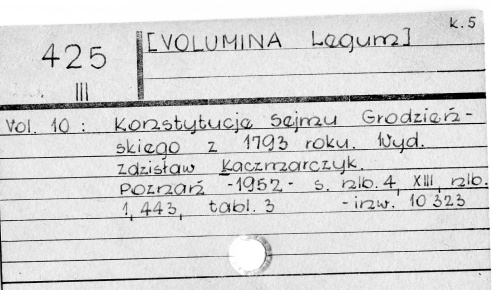 k. 5
425 [VOLUMINA Legum]
III
Vol. 10 : Konstytucje Sejmu Grodzień-
skiego z 1793 roku. Wyd.
Zdzisław Kaczmarczyk.
Poznań -1952- s. nlb. 4, XIII, nlb.
1, 443, tabl. 3 -inw. 10 323